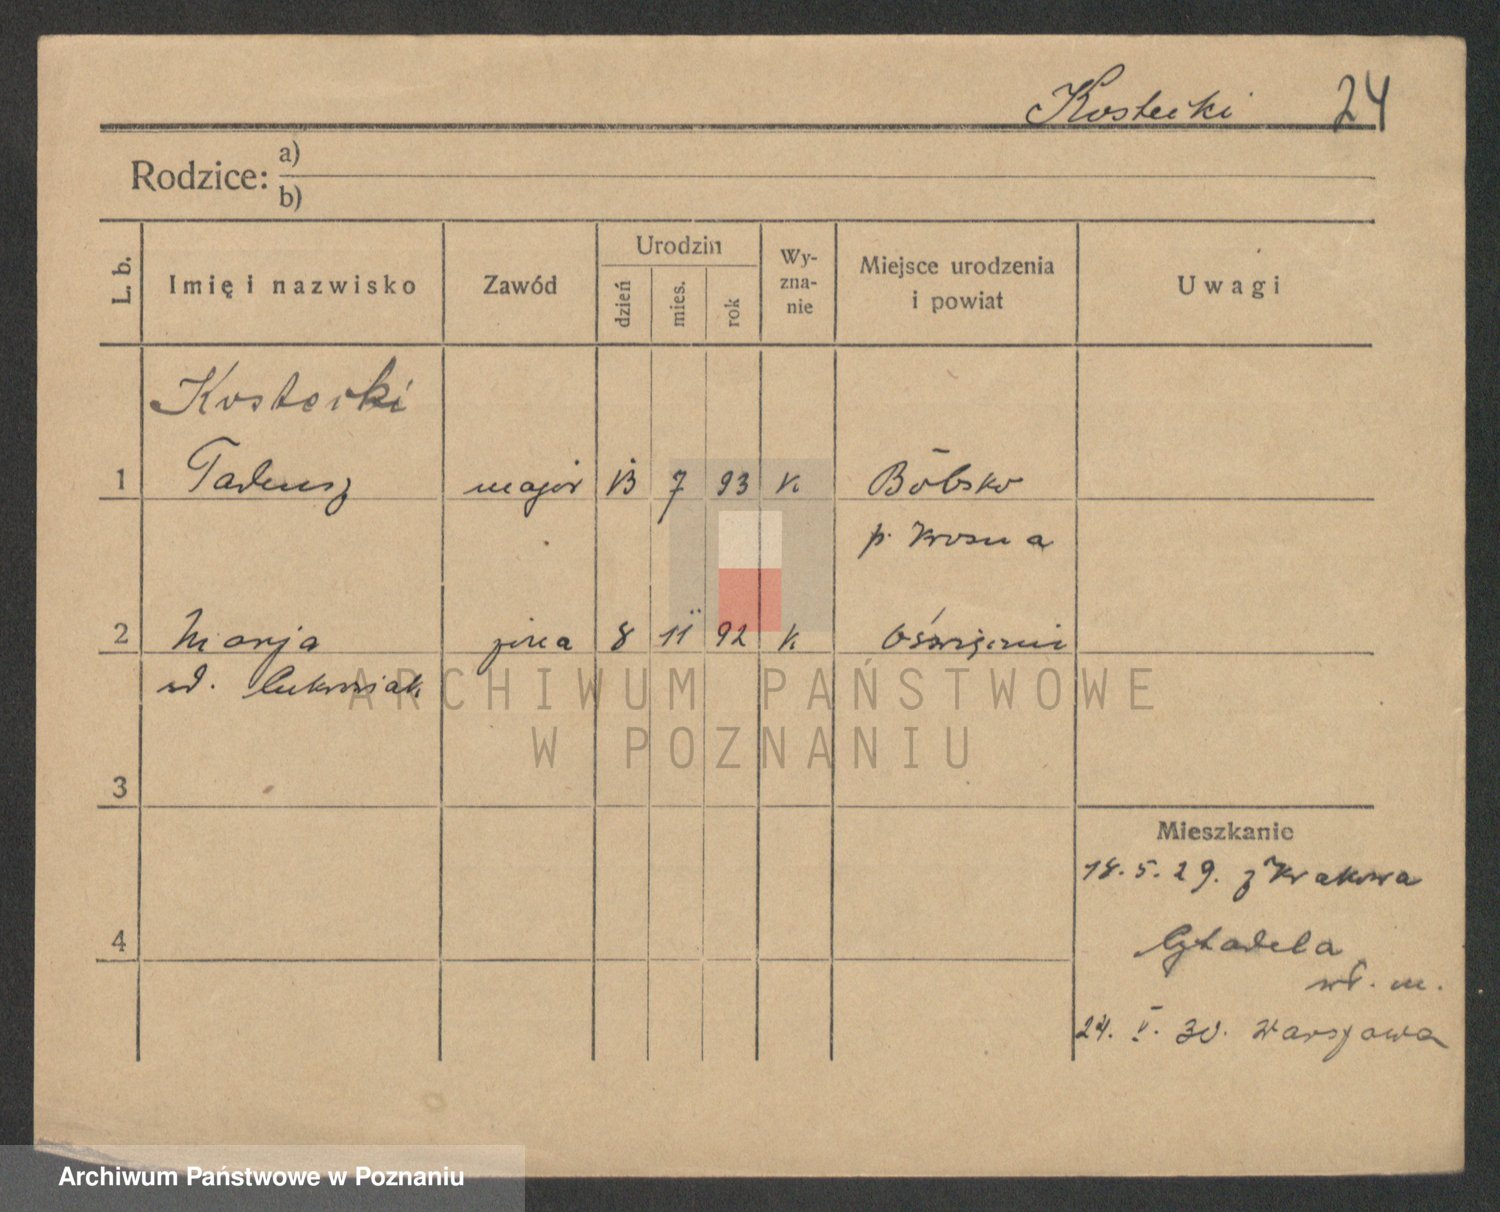 Kostecki 24
Rodzice: a)
b)
L. b. Imię i nazwisko Zawód Urodzin dzień mies. rok Wy-zna-nie Miejsce urodzenia i powiat Uwagi
Kostecki
1 Tadeusz major 13 7 93 K Bóbsko
p. Krosna
2 Marja żona 8 11 92 K Oświęcim
ud.
ARCHIWUM PAŃSTWOWE
W POZNANIU
3
Mieszkanie
18. 5. 29. z Krakowa
4
Cytadela
wł. m.
24. V. 30. Warszawa
Archiwum Państwowe w Poznaniu